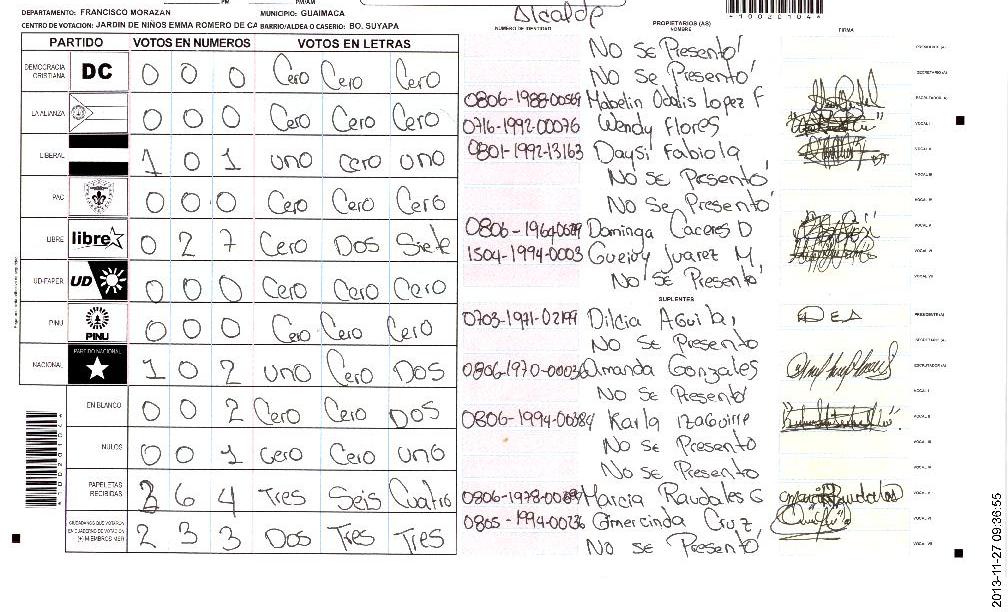 DEPARTAMENTO: FRANCISCO MORAZAN MUNICIPIO: GUAIMACA
CENTRO DE VOTACION: JARDIN DE NIÑOS EMMA ROMERO DE CA BARRIO/ALDEA O CASERIO: BO. SUYAPA
Alcalde
*100201044*
PARTIDO VOTOS EN NUMEROS VOTOS EN LETRAS
DEMOCRACIA CRISTIANA DC 0 0 0 Cero Cero Cero
LA ALIANZA 0 0 0 Cero Cero Cero
LIBERAL 1 0 1 uno cero uno
PAC 0 0 0 Cero Cero Cero
LIBRE libre 0 2 7 Cero Dos Siete
UD-FAPER UD 0 0 0 Cero Cero Cero
PINU PINU 0 0 0 Cero Cero Cero
NACIONAL PARTIDO NACIONAL 1 0 2 uno Cero Dos
EN BLANCO 0 0 2 Cero Cero Dos
NULOS 0 0 1 Cero Cero uno
PAPELETAS RECIBIDAS 3 6 4 Tres Seis Cuatro
CIUDADANOS QUE VOTARON EN CUADERNO DE VOTACION (+) MIEMBROS MER 2 3 3 Dos Tres Tres
NUMERO DE IDENTIDAD PROPIETARIOS (AS) NOMBRE FIRMA
No Se Presento PRESIDENTE (A)
No Se Presento SECRETARIO (A)
0806-1988-00569 Mabelin Odalis Lopez F ESCRUTADOR (A)
0716-1992-00076 Wendy Flores VOCAL I
0801-1992-13163 Daysi Fabiola VOCAL II
No Se Presento VOCAL III
No Se Presento VOCAL IV
0806-1964- Dominga Caceres D VOCAL V
1504-1994-0003 Gueidy Juarez M. VOCAL VI
No Se Presento VOCAL VII
SUPLENTES
0703-1971-02199 Dilcia Aguilar PRESIDENTE (A)
No Se Presento SECRETARIO (A)
0806-1970-00036 Amanda Gonzales ESCRUTADOR (A)
No Se Presento VOCAL I
0806-1994-00384 Karla Izaguirre VOCAL II
No Se Presento VOCAL III
No Se Presento VOCAL IV
0806-1978-0089 Marcia Raudales G VOCAL V
0805-1994-00236 Gmercinda Cruz VOCAL VI
No Se Presento VOCAL VII
*100201044*
2013-11-27 09:36:55